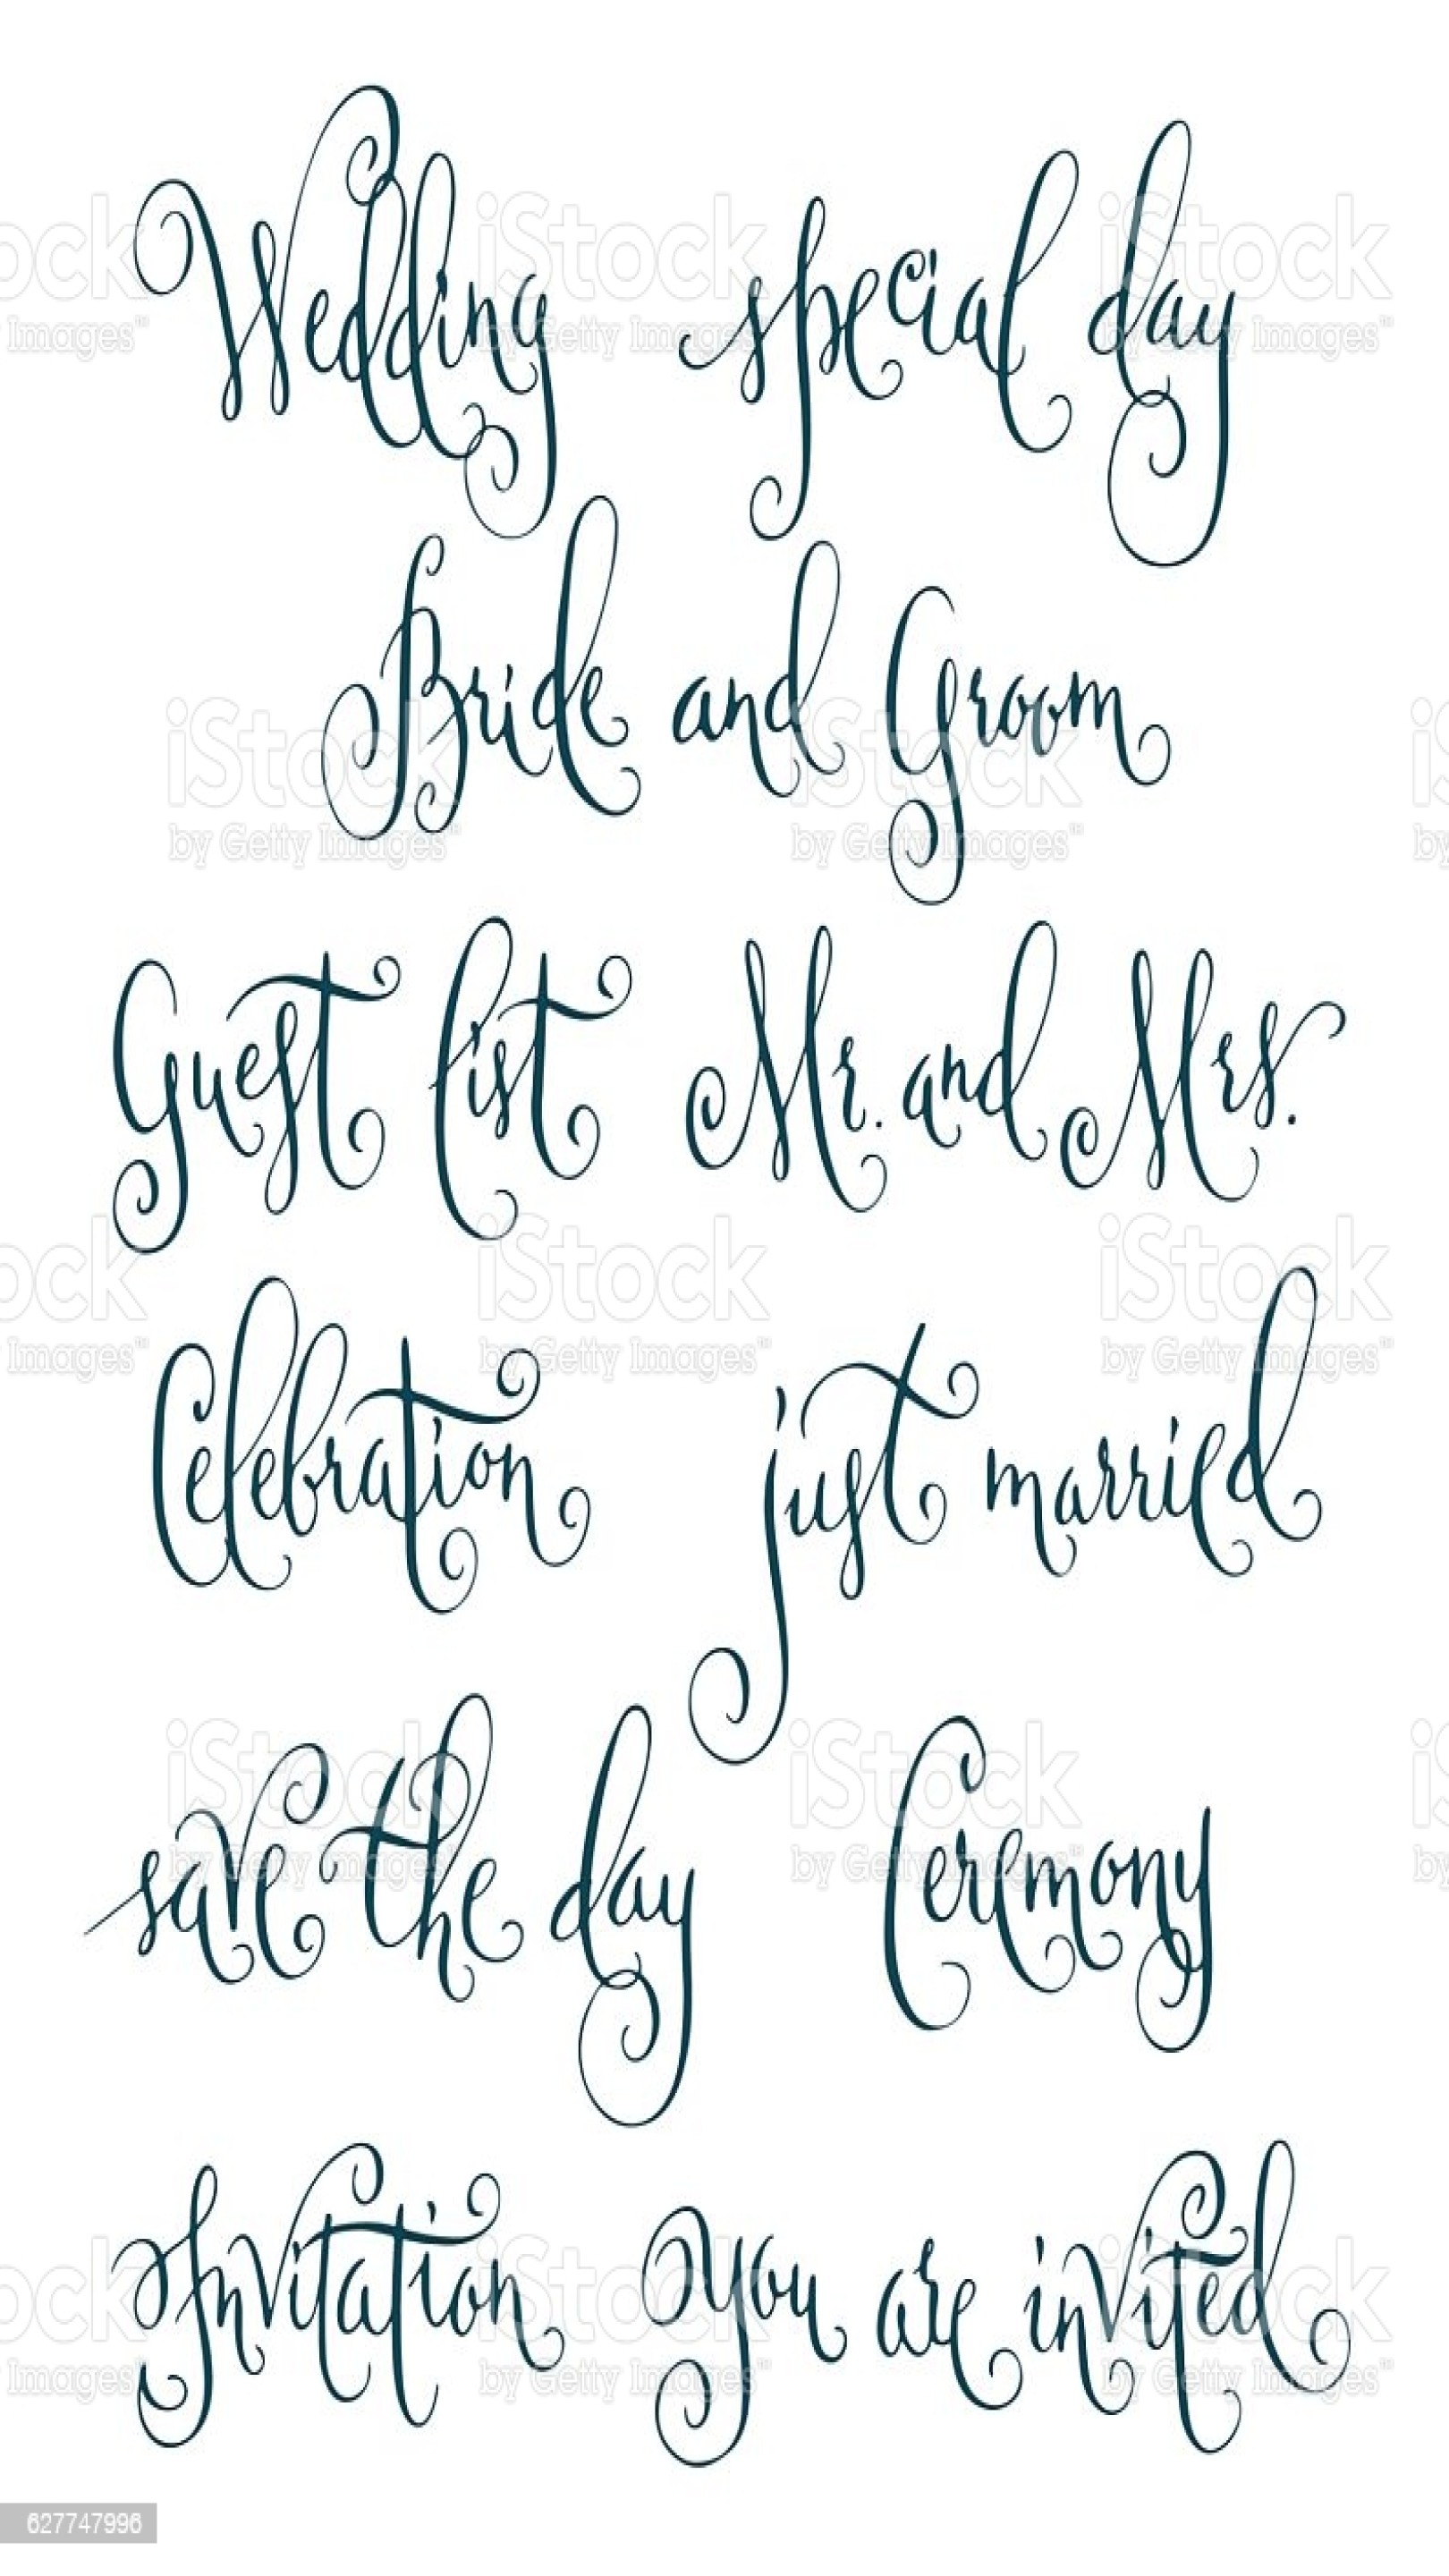 Wedding special day
Bride and Groom
Guest list Mr. and Mrs.
Celebration just married
save the day Ceremony
Invitation You are invited
iStock
by Getty Images™
627747996